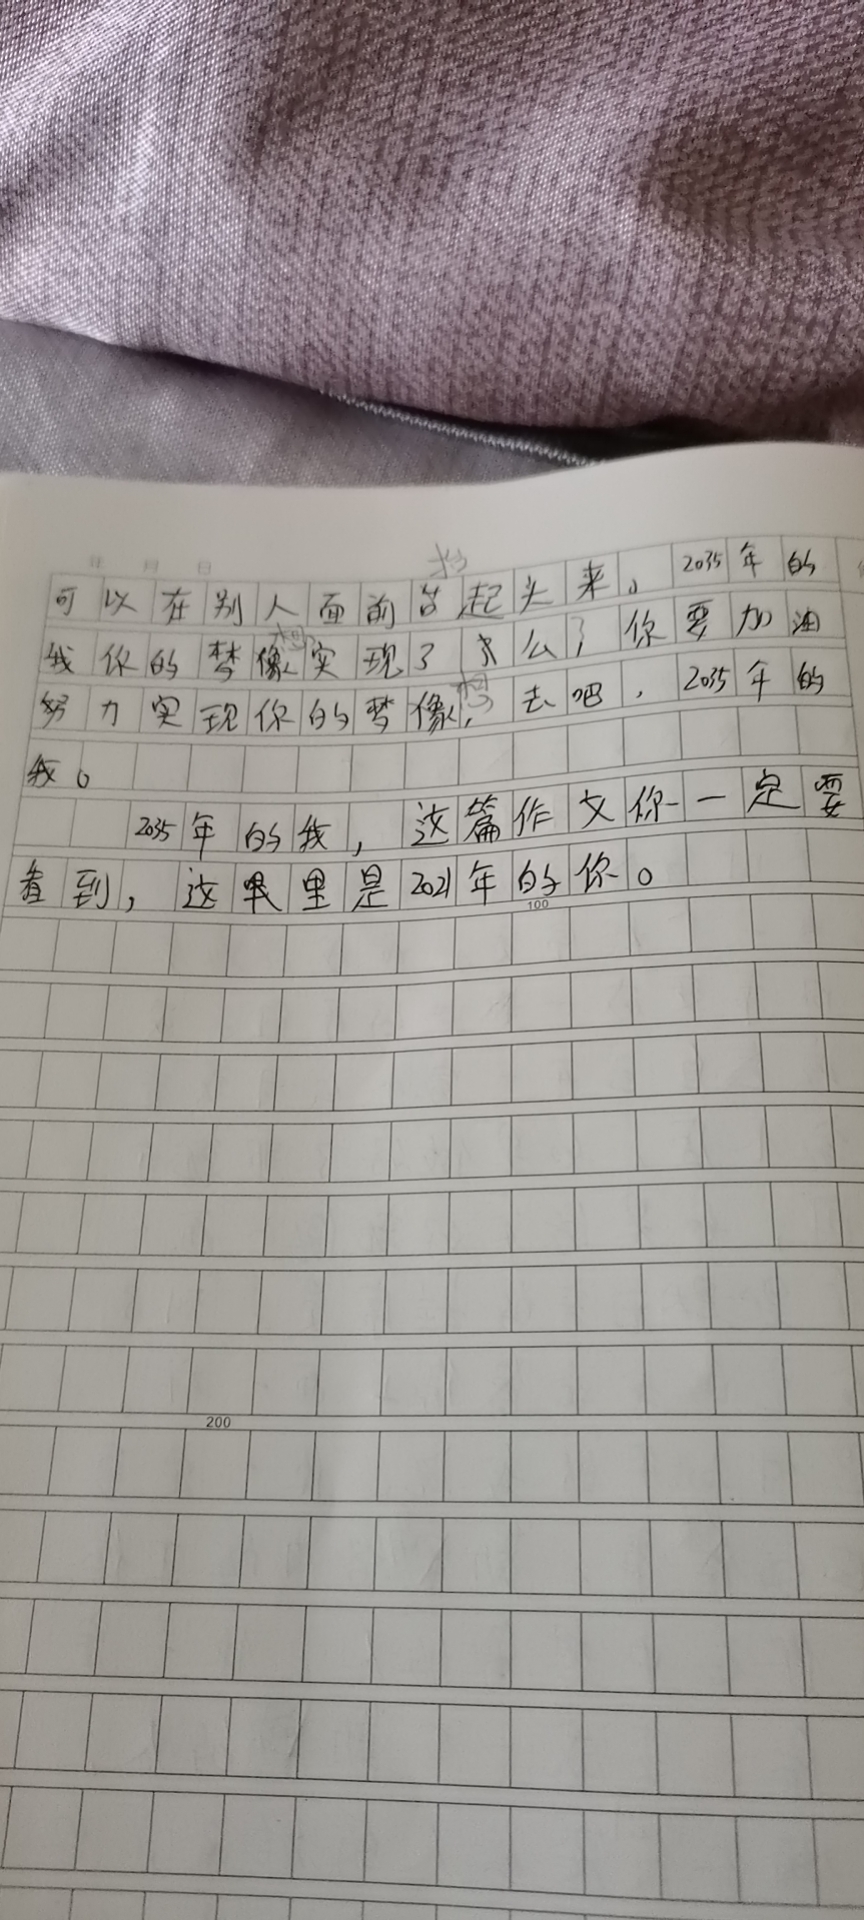 年 月 日
抬
可以在别人面前苔起头来。2035年的
想
我你的梦像实现了么了你要加油
想
努力实现你的梦像,去吧,2035年的
我。
2035年的我,这篇作文你一定要
看到,这里是2021年的你。
100
200